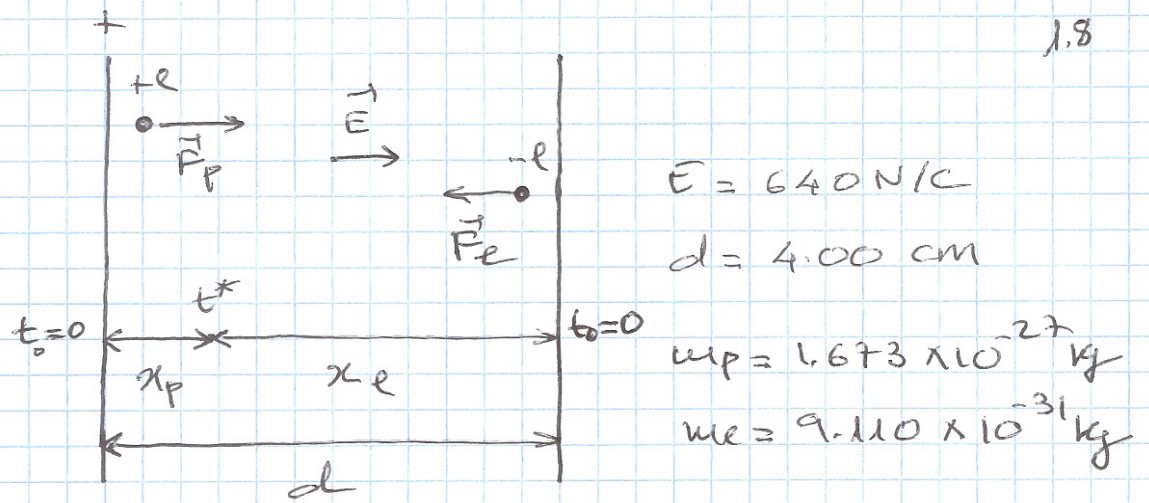 +
1.8
+e
F⃗p
E⃗
-e
F⃗e
E = 640 N/C
d = 4.00 cm
t*
t₀=0
t₀=0
xp
xe
mp = 1.673 × 10⁻²⁷ kg
me = 9.110 × 10⁻³¹ kg
d